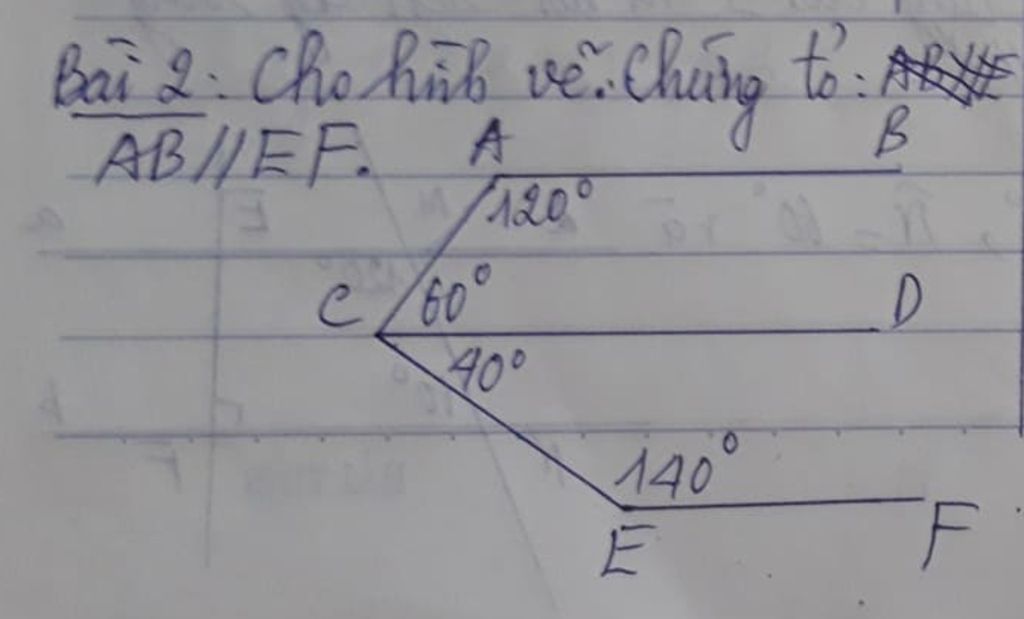 Bài 2: Cho hình vẽ. Chứng tỏ:
AB//EF.
A B
120°
C 60° D
40°
140°
E F